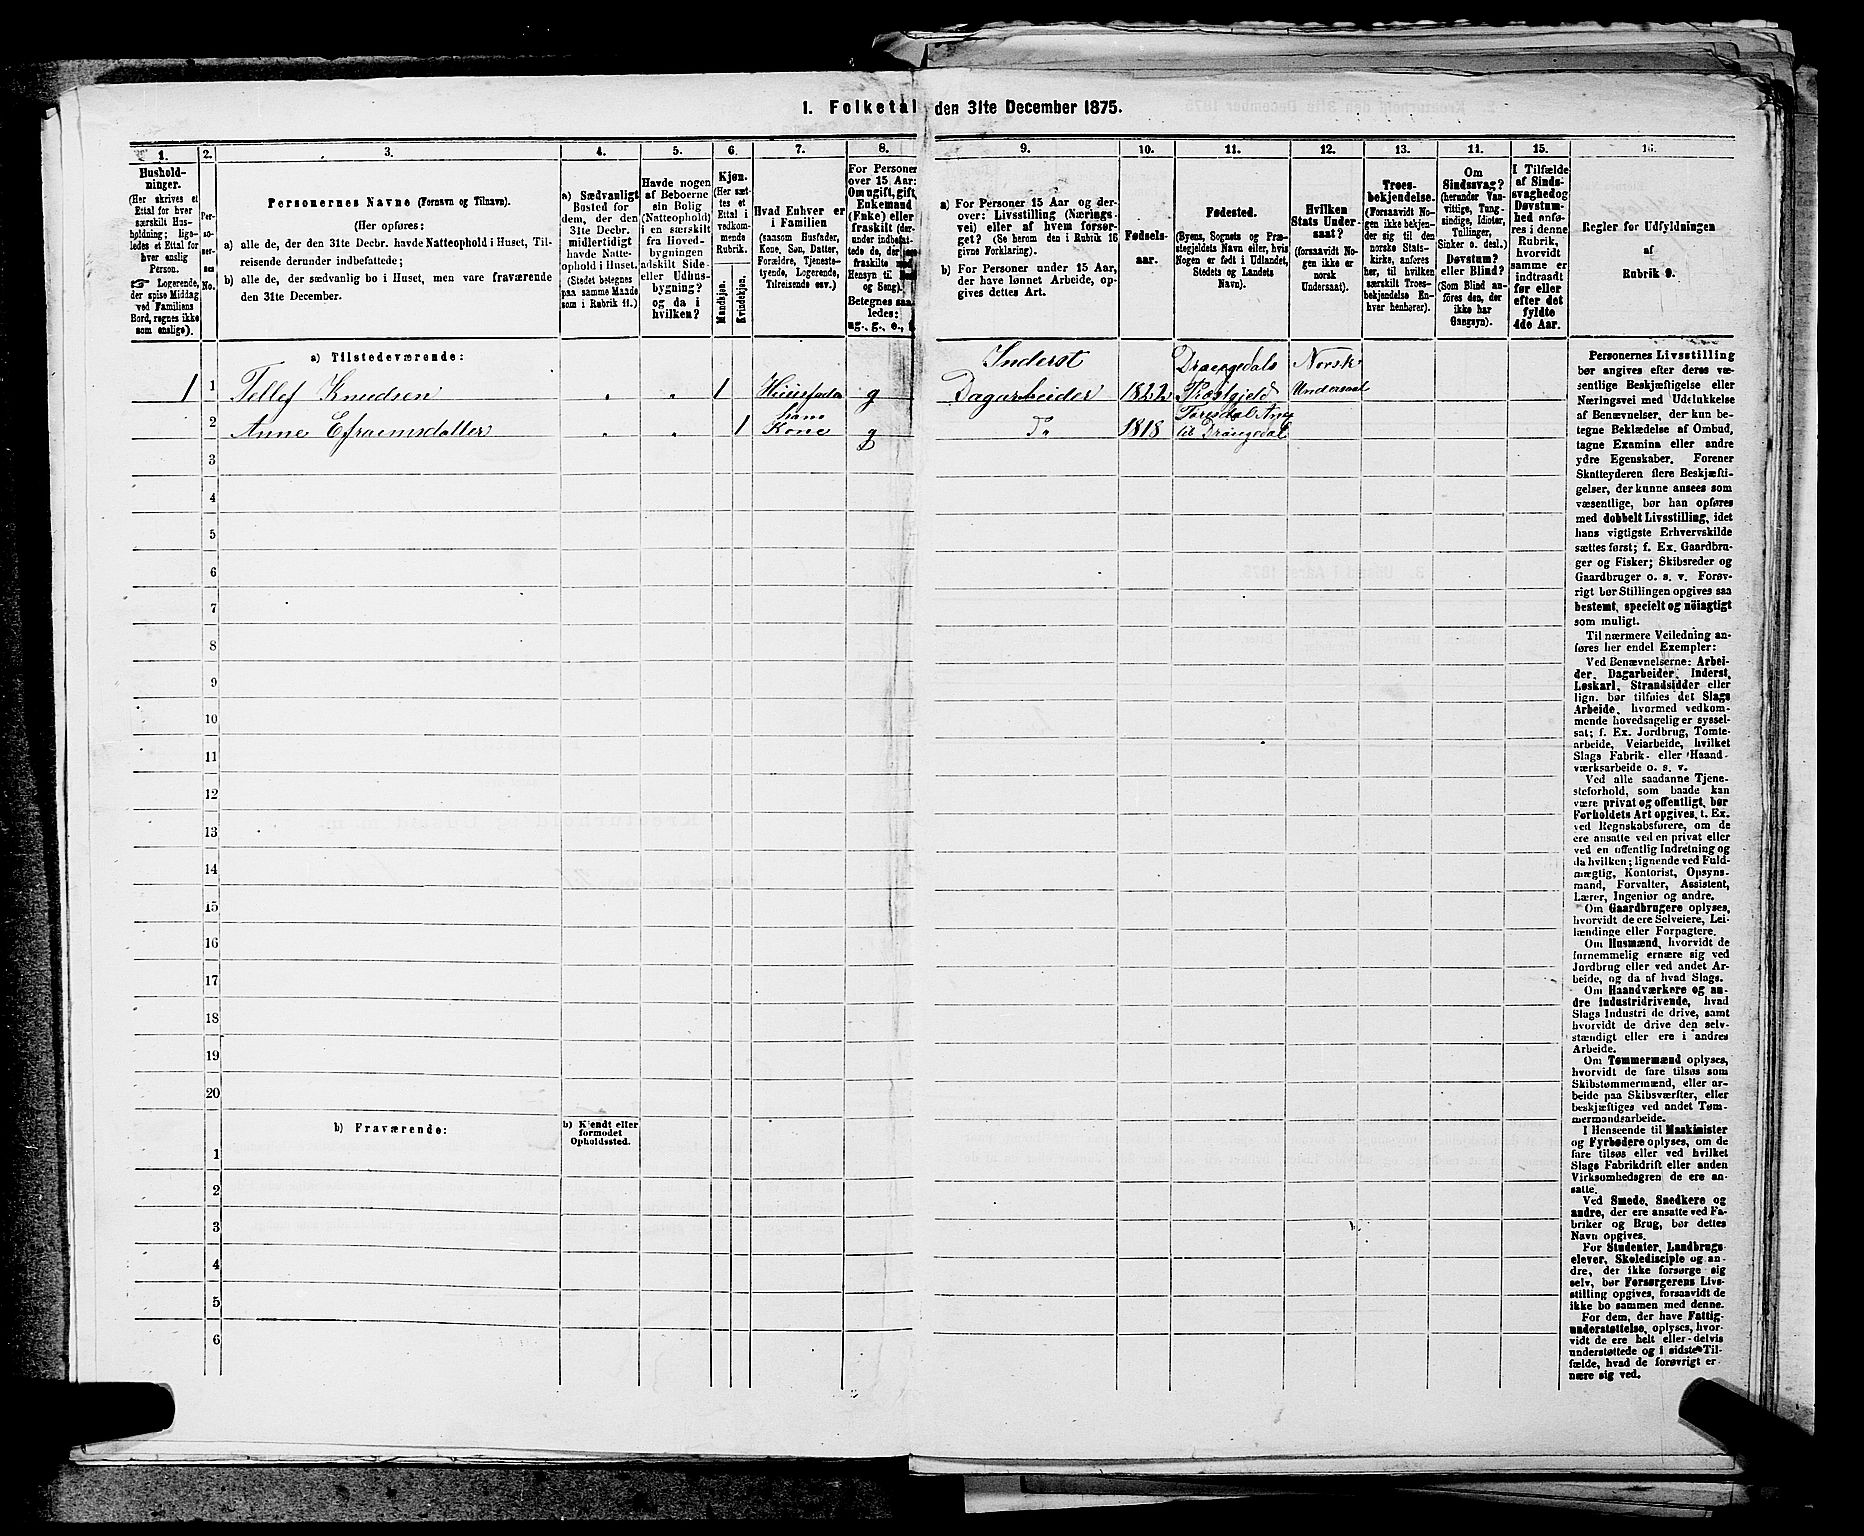 1. Folketal den 31te December 1875.
1. 2. 3. 4. 5. 6. 7. 8. 9. 10. 11. 12. 13. 11. 15. 16.
Hushold-
ninger.
(Her skrives et
Ettal for hver
særskilt Hus-
holdning; liga-
ledes et Ettal for
hver enslig
Person.
☞ Logerende,
der spise Middag
ved Familiens
Bord, regnes ikke
som enslige).
Per-
so-
ner-
nes
No.
Personernes Navne (Fornavn og Tilnavn).
(Her opføres:
a) alle de, der den 31te Decbr. havde Natteophold i Huset, Til-
reisende derunder indbefattede;
b) alle de, der sædvanlig bo i Huset, men vare fraværende
den 31te December.
a) Sædvanligt
Bosted for
dem, der den
31te Decbr.
midlertidigt
havde Natte-
ophold i Huset.
(Stedet betegnes
paa samme Maade
som i Rubrik 11.)
Havde nogen
af Beboerne
ein Bolig
(Natteophold)
i en særskilt
fra Hoved-
bygningen
adskilt Side-
eller Udhus-
bygning?
og da i
hvilken?
Kjøn.
(Her sæt-
tes et
Ettal i
vedkom-
mende
Rubrik.
Mandkjøn.
Kvindekjøn.
Hvad Enhver er
i Familien
(saasom Husfader,
Kone, Søn, Datter,
Forældre, Tjeneste-
tyende, Logerende,
Tilreisende osv.)
For Personer
over 15 Aar:
Om ugift, gift,
Enkemand
(Enke) eller
fraskilt (der-
under indbefat-
tede de, der ere
fraskilte med
Hensyn til
og Seng).
Betegnes saa-
ledes:
ug., g., e., f.
a) For Personer 15 Aar og der-
over: Livsstilling (Nærings-
vei) eller af hvem forsør-
get? (Se herom den i Rubrik 16
givne Forklaring).
b) For Personer under 15 Aar,
der have lønnet Arbeide, op-
gives dettes Art.
Fødsels-
aar.
Fødested.
(Byens, Sognets og Præ-
stegjeldets Navn eller, hvis
Nogen er født i Udlandet,
Stedets og Landets
Navn).
Hvilken
Stats Under-
saat?
(forsaavidt No-
gen ikke er
norsk
Undersaat).
Troes-
bekjendelse.
(Forsaavidt No-
gen ikke bekjen-
der sig til den
norske Stats-
kirke, anføres
her, til hvilken
særskilt Troes-
bekjendelse En-
hver henhører).
Om
Sindssvag?
(herunder Van-
vittige, Tung-
sindige, Idioter,
Tullinger,
Sinker o. desl.)
Døvstum?
eller Blind?
(Som Blind an-
føres den, der
ikke har
Gangsyn).
I Tilfælde
af Sinds-
svaghed og
Døvstum-
hed anfø-
res i denne
Rubrik,
hvorvidt
samme er
indtraadt
før eller
efter det
fyldte
4de Aar.
Regler for Udfyldningen
af
Rubrik 9.
a) Tilstedeværende:
Inderst Drangedals Norsk
1 1 Tellef Knudsen „ „ 1 Huusfader g Dagarbeider 1822 Præstgjeld Undersaat
hans
2 Anne Efraemsdatter „ „ 1 Kone g Do 1818 til Drangedal
3
4
5
6
7
8
9
10
11
12
13
14
15
16
17
18
19
20
b) Fraværende:
b) Kjendt eller
formodet
Opholdssted.
1
2
3
4
5
6
Personernes Livsstilling
bør angives efter deres væ-
sentlige Beskjæftigelse eller
Næringsvei med Udelukkelse
af Benævnelser, der kun be-
tegne Beklædelse af Ombud,
tagne Examina eller andre
ydre Egenskaber. Forener
Skatteyderen flere Beskjæfti-
gelser, der kunne ansees som
væsentlige, bør han opføres
med dobbelt Livsstilling, idet
hans vigtigste Erhvervskilde
sættes først; f. Ex. Gaardbru-
ger og Fisker; Skibsreder og
Gaardbruger o. s. v. Forøv-
rigt bør Stillingen opgives saa
bestemt, specielt og nöiagtigt
som muligt.
Til nærmere Veiledning an-
føres her endel Exempler:
Ved Benævnelserne: Arbei-
der, Dagarbeider, Inderst,
Løskarl, Strandsidder eller
lign. bør tilføies det Slags
Arbeide, hvormed vedkom-
mende hovedsagelig er syssel-
sat; f. Ex. Jordbrug, Tomte-
arbeide, Veiarbeide, hvilket
Slags Fabrik- eller Haand-
værksarbeide o. s. v.
Ved alle saadanne Tjene-
steforhold, som baade kan
være privat og offentligt, bør
Forholdets Art opgives, t. Ex.
ved Regnskabsførere, om de
ere ansatte ved en privat eller
ved en offentlig Indretning og
da hvilken; lignende ved Fuld-
mægtig, Kontorist, Opsyns-
mand, Forvalter, Assistent,
Lærer, Ingeniør og andre.
Om Gaardbrugere oplyses,
hvorvidt de ere Selveiere, Lei-
lændinge eller Forpagtere.
Om Husmænd, hvorvidt de
fornemmelig ernære sig ved
Jordbrug eller ved andet Ar-
beide, og da af hvad Slags.
Om Haandværkere og an-
dre Industridrivende, hvad
Slags Industri de drive, samt
hvorvidt de drive den selv-
stændigt eller ere i andres
Arbeide.
Om Tømmermænd oplyses,
hvorvidt de fare tilsøs som
Skibstømmermænd, eller ar-
beide paa Skibsværfter, eller
beskjæftiges ved andet Tøm-
mermandsarbeide.
I Henseende til Maskinister
og Fyrbødere oplyses, om de
fare tilsøs eller ved hvilket
Slags Fabrikdrift eller anden
Virksomhedsgren de ere an-
satte.
Ved Smede, Snedkere og
andre, der ere ansatte ved Fa-
briker og Brug, bør dettes
Navn opgives.
For Studenter, Landbrugs-
elever, Skoledisciple og an-
dre, der ikke forsørge sig
selv, bør Forsørgerens Livs-
stilling opgives, forsaavidt de
ikke bo sammen med denne.
For dem, der have Fattig-
understøttelse, oplyses, hvor-
vidt de ere helt eller delvis
understøttede og i sidste Til-
fælde, hvad de forøvrigt er-
nære sig ved.